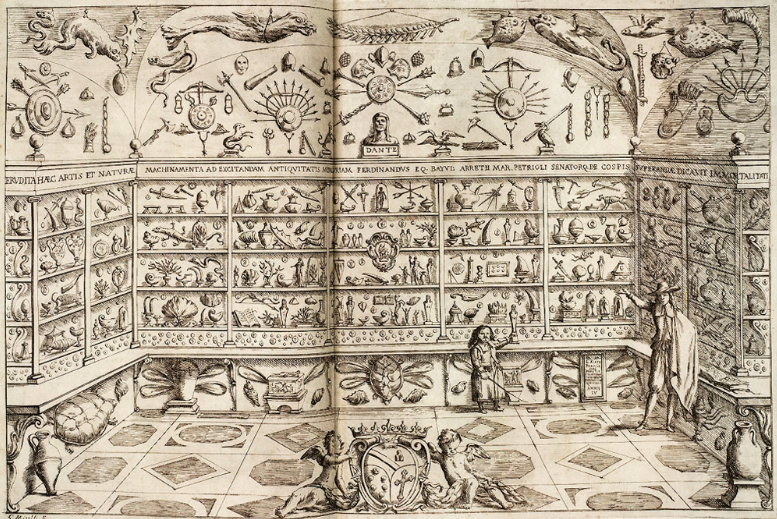 DANTE
ERUDITA HÆC ARTIS ET NATURÆ MACHINAMENTA AD EXCITANDAM ANTIQVITATIS FERDINANDUS EQ. BAYVL ARRETII MAR. PETRIOLI SENATORQ. DE COSPIS DICAVIT